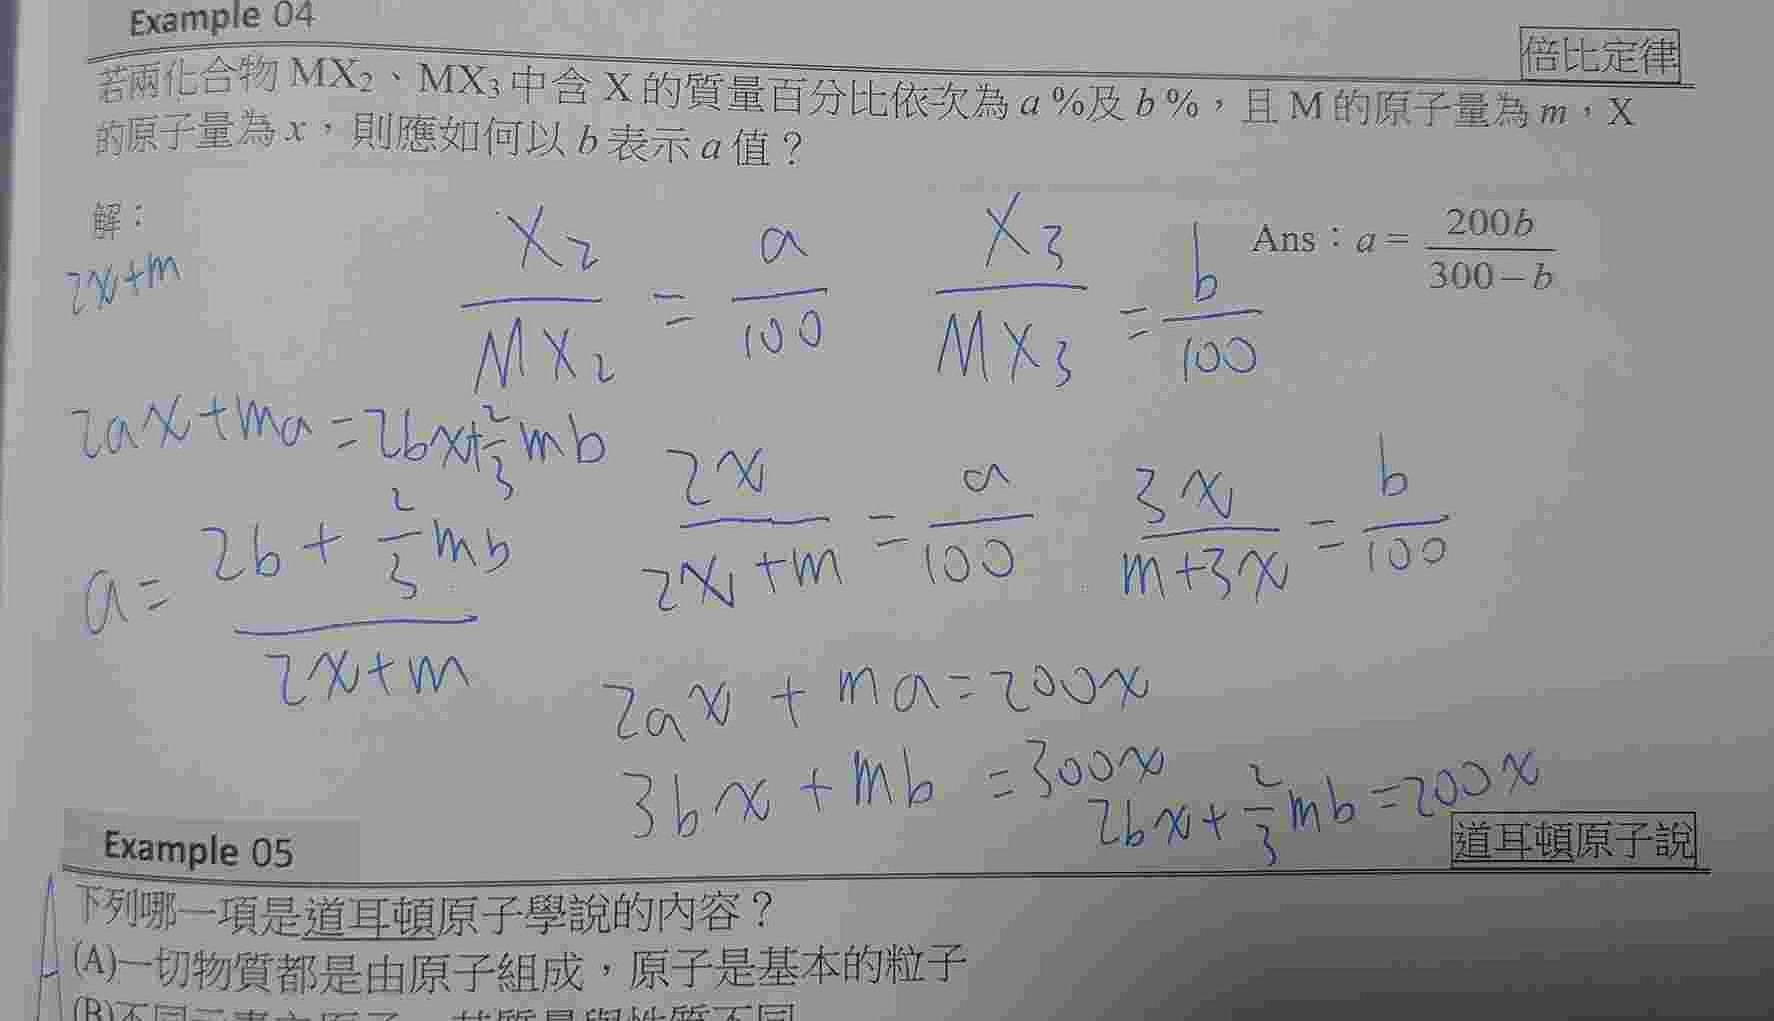 Example 04
倍比定律
若兩化合物 MX₂、MX₃ 中含 X 的質量百分比依次為 a %及 b %，且 M 的原子量為 m，X
的原子量為 x，則應如何以 b 表示 a 值？
解：
Ans：a = 200b / (300 − b)
2x+m
X₂ / MX₂ = a / 100
X₃ / MX₃ = b / 100
2ax+ma=2bx+2/3 mb
2x / (2x+m) = a / 100
3x / (m+3x) = b / 100
a= (2b + 2/3 mb) / (2x+m)
2ax + ma=200x
3bx + mb = 300x
2bx + 2/3 mb=200x
Example 05
道耳頓原子說
下列哪一項是道耳頓原子學說的內容？
(A)一切物質都是由原子組成，原子是基本的粒子
(B)不同元素之原子，其質量與性質不同